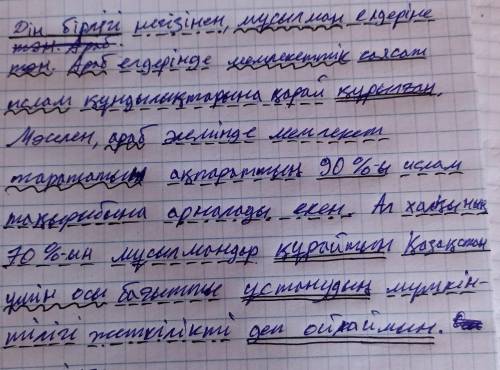 Дін бірлігі негізінен, мусылман елдеріне
тән. Араб елдерінде мемлекеттік саясат
ислам құндылықтарына қарай құрылған.
Мәселен, араб желінде мемлекет
тарататын ақпараттың 90 %-ы ислам
тақырыбына арналады екен. Ал халқының
70 %-ын мусылмандар құрайтын Қазақстан
үшін осы бағытты ұстанудың мүмкін-
тілігі жеткілікті деп ойлаймын.